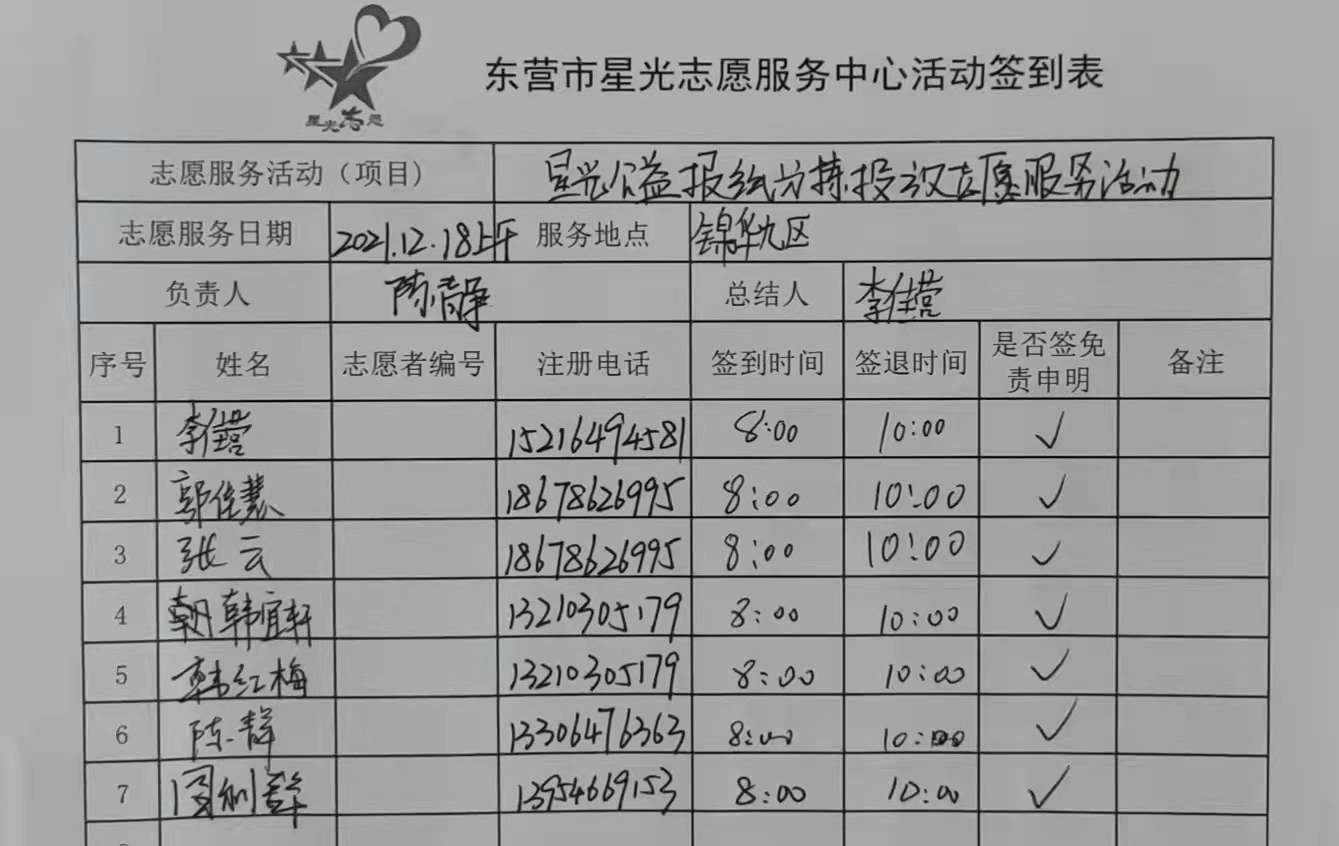 星光志愿
东营市星光志愿服务中心活动签到表
志愿服务活动（项目） 星光公益报纸分拣投放志愿服务活动
志愿服务日期 2021.12.18上午 服务地点 锦华九区
负责人 陈静 总结人 李佳营
序号 姓名 志愿者编号 注册电话 签到时间 签退时间 是否签免责申明 备注
1 李佳营 15216494581 8:00 10:00 ✓
2 郭佳慧 18678626995 8:00 10:00 ✓
3 张云 18678626995 8:00 10:00 ✓
4 韩宜轩 13210305179 8:00 10:00 ✓
5 韩红梅 13210305179 8:00 10:00 ✓
6 陈静 13306476363 8:00 10:00 ✓
7 13954669153 8:00 10:00 ✓